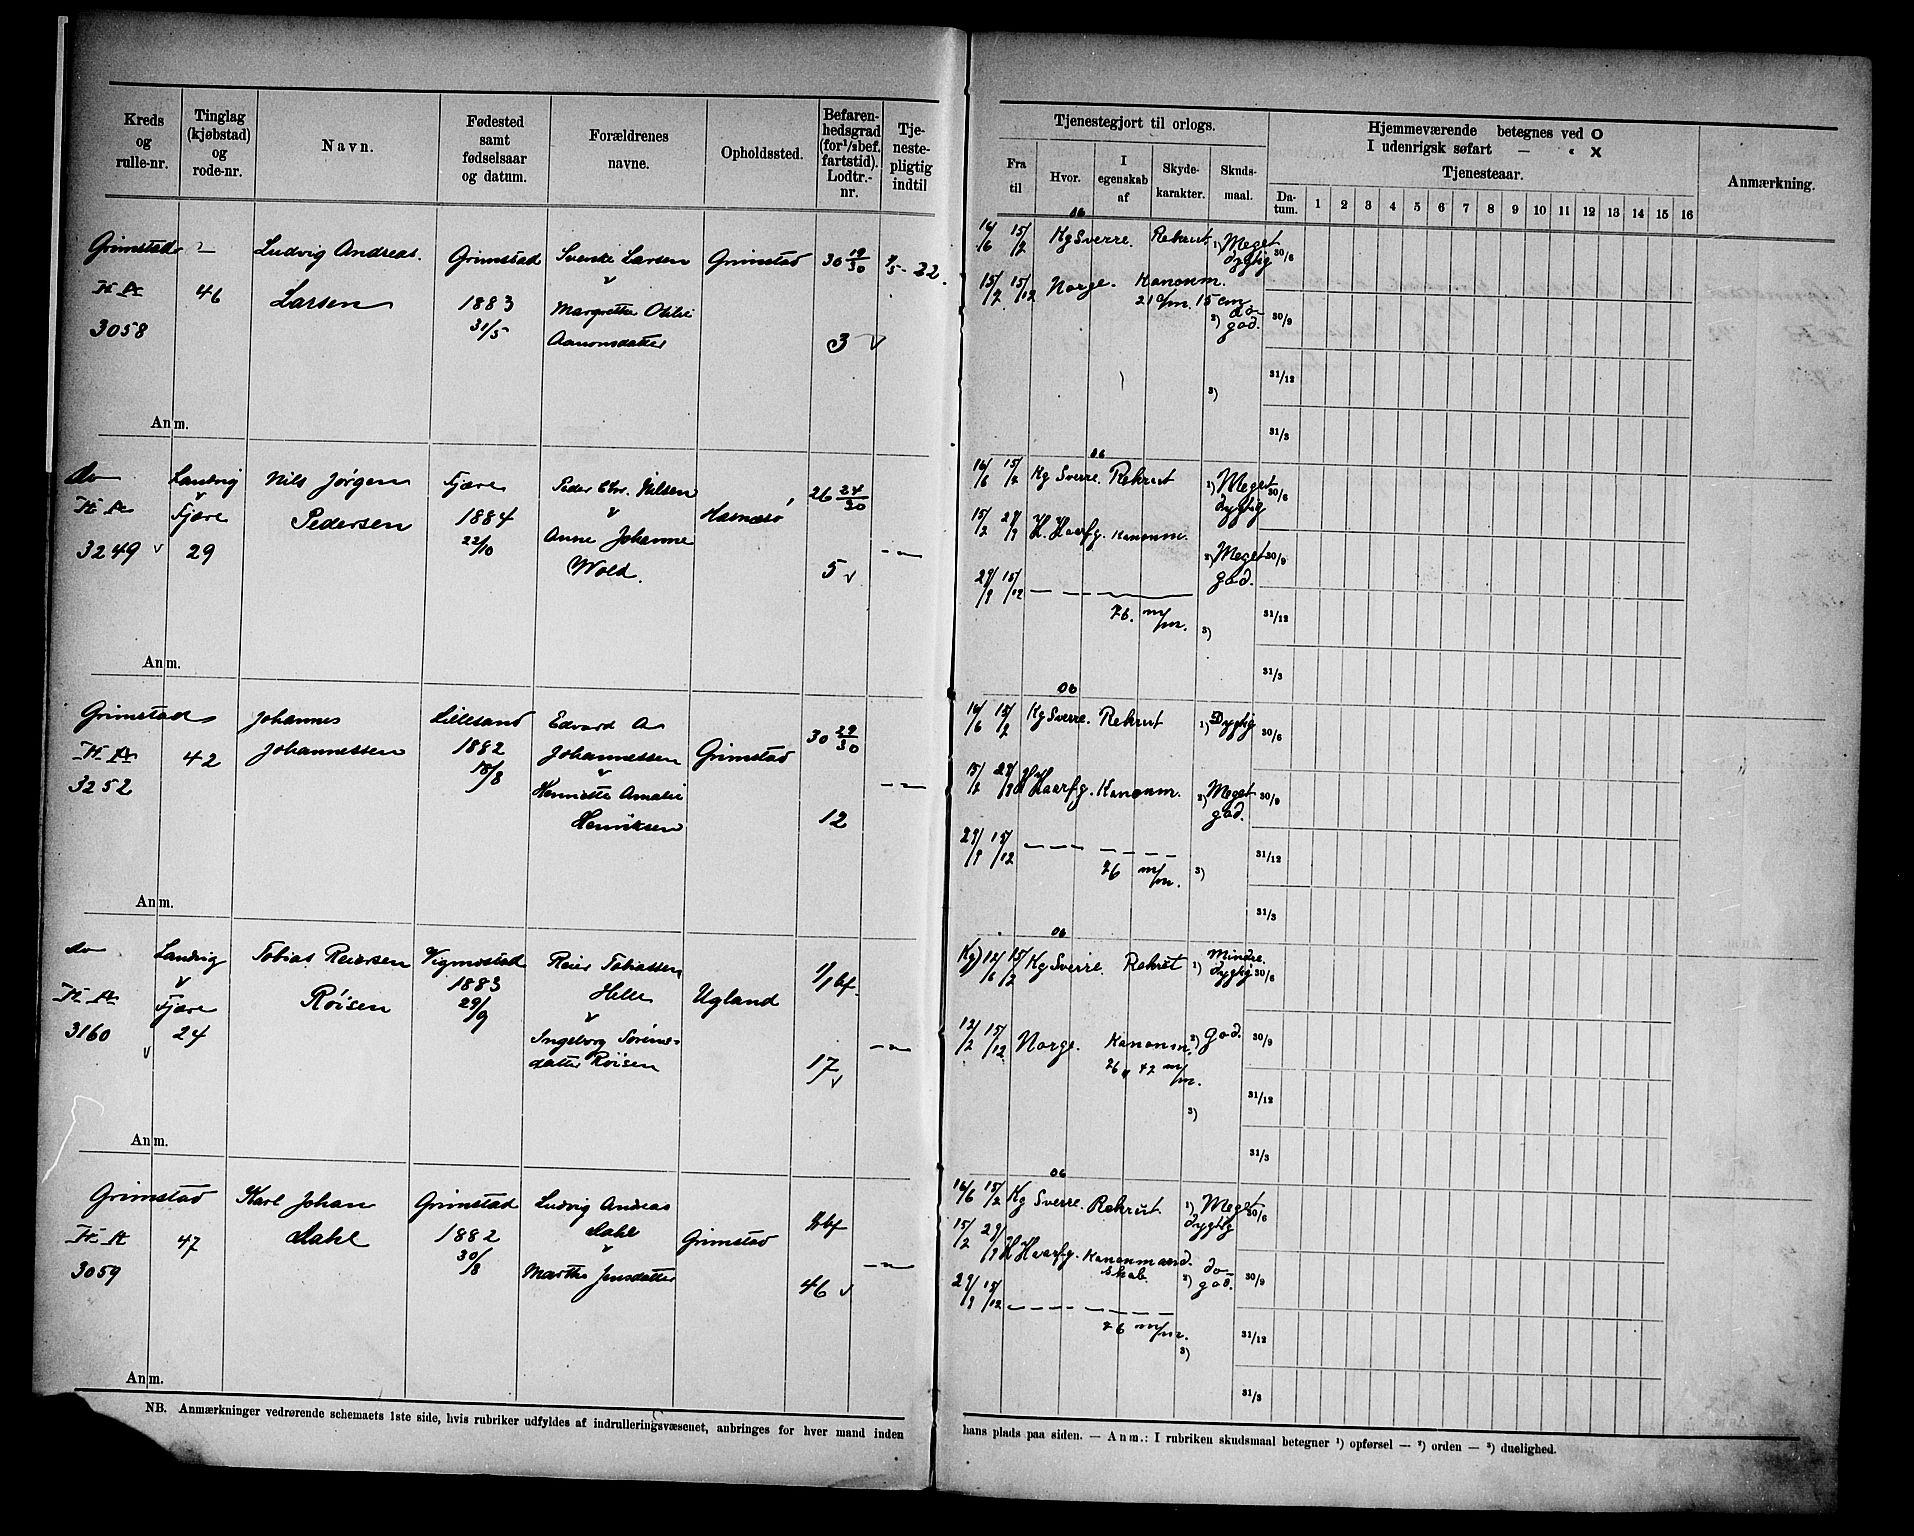 Kreds og rulle-nr.
Tinglag (kjøbstad) og rode-nr.
Navn.
Fødested samt fødselsaar og datum.
Forældrenes navne.
Opholdssted.
Befaren-hedsgrad (for 1/1 bef. fartstid). Lodtr.-nr.
Tje-neste-pligtig indtil
Tjenestegjort til orlogs.
Fra til
Hvor.
I egenskab af
Skyde-karakter.
Skuds-maal.
Hjemmeværende betegnes ved O
I udenrigsk søfart — " X
Tjenesteaar.
Da-tum. 1 2 3 4 5 6 7 8 9 10 11 12 13 14 15 16
Anmærkning.
Grimstad
3058
46
Ludvig Andreas
Larsen
Grimstad
1883
31/5
Svenke Larsen
v
Margrethe Othilie
Aanonsdatter
Grimstad
30 19/30
3 v
22.
06
16/6 15/2 Kg Sverre. Rekrut 1) Meget dygtig 30/6
15/2 15/12 Norge. Kanonm. 21 c/m. 15 cm 2) do god. 30/9
3) 31/12
31/3
Anm.
do
3249 v
Landvig
v
Fjære
29
Nils Jørgen
Pedersen
Fjære
1884
22/10
Peder Chr. Nilsen
v
Anne Johanne
Wold.
Hasnæsø
26 24/30
5 v
—"—
06
16/6 15/2 Kg Sverre. Rekrut 1) Meget dygtig 30/6
15/2 29/9 H. Haarfg. Kanonm. 2) Meget god. 30/9
29/9 15/12 — — — — 76. m/m. 3) 31/12
31/3
Anm.
Grimstad
3252
42
Johannes
Johannessen
Lillesand
1882
18/8
Edvard A
Johannessen
v
Henriette Amalie
Henriksen
Grimstad
30 29/30
12
—"—
06
16/6 15/2 Kg Sverre. Rekrut 1) Dygtig 30/6
15/2 29/9 H Haarfg. Kanonm. 2) Meget god. 30/9
29/9 15/12 — — — — 76 m/m. 3) 31/12
31/3
Anm.
do
3160
v
Landvig
v
Fjære
24
Tobias Reiersen
Røisen
Vigmostad
1883
29/9
Reier Tobiassen
Helle
v
Ingeborg Sørens-
datter Røisen
Ugland
1/1 bf.
17 v
—"—
06
Kg) 12/6 15/2 Kg Sverre. Rekrut 1) Mindre dygtig 30/6
12/2 15/12 Norge. Kanonm. 76 " 42 m/m. 2) God. 30/9
3) 31/12
31/3
Anm.
Grimstad
3059
47
Karl Johan
Dahl
Grimstad
1882
30/8
Ludvig Andreas
Dahl
v
Marthe Jensdatter
Grimstad
46 v
—"—
06
16/6 15/2 Kg Sverre. Rekrut. 1) Meget dygtig 30/6
15/2 29/9 H Haarfg. Kanonmand skab. 2) do god. 30/9
29/9 15/12 — — — — 76 m/m. 3) 31/12
31/3
Anm.
NB. Anmærkninger vedrørende schemaets 1ste side, hvis rubriker udfyldes af indrulleringsvæsenet, anbringes for hver mand inden
hans plads paa siden. — Anm.: I rubriken skudsmaal betegner ¹) opførsel — ²) orden — ³) duelighed.